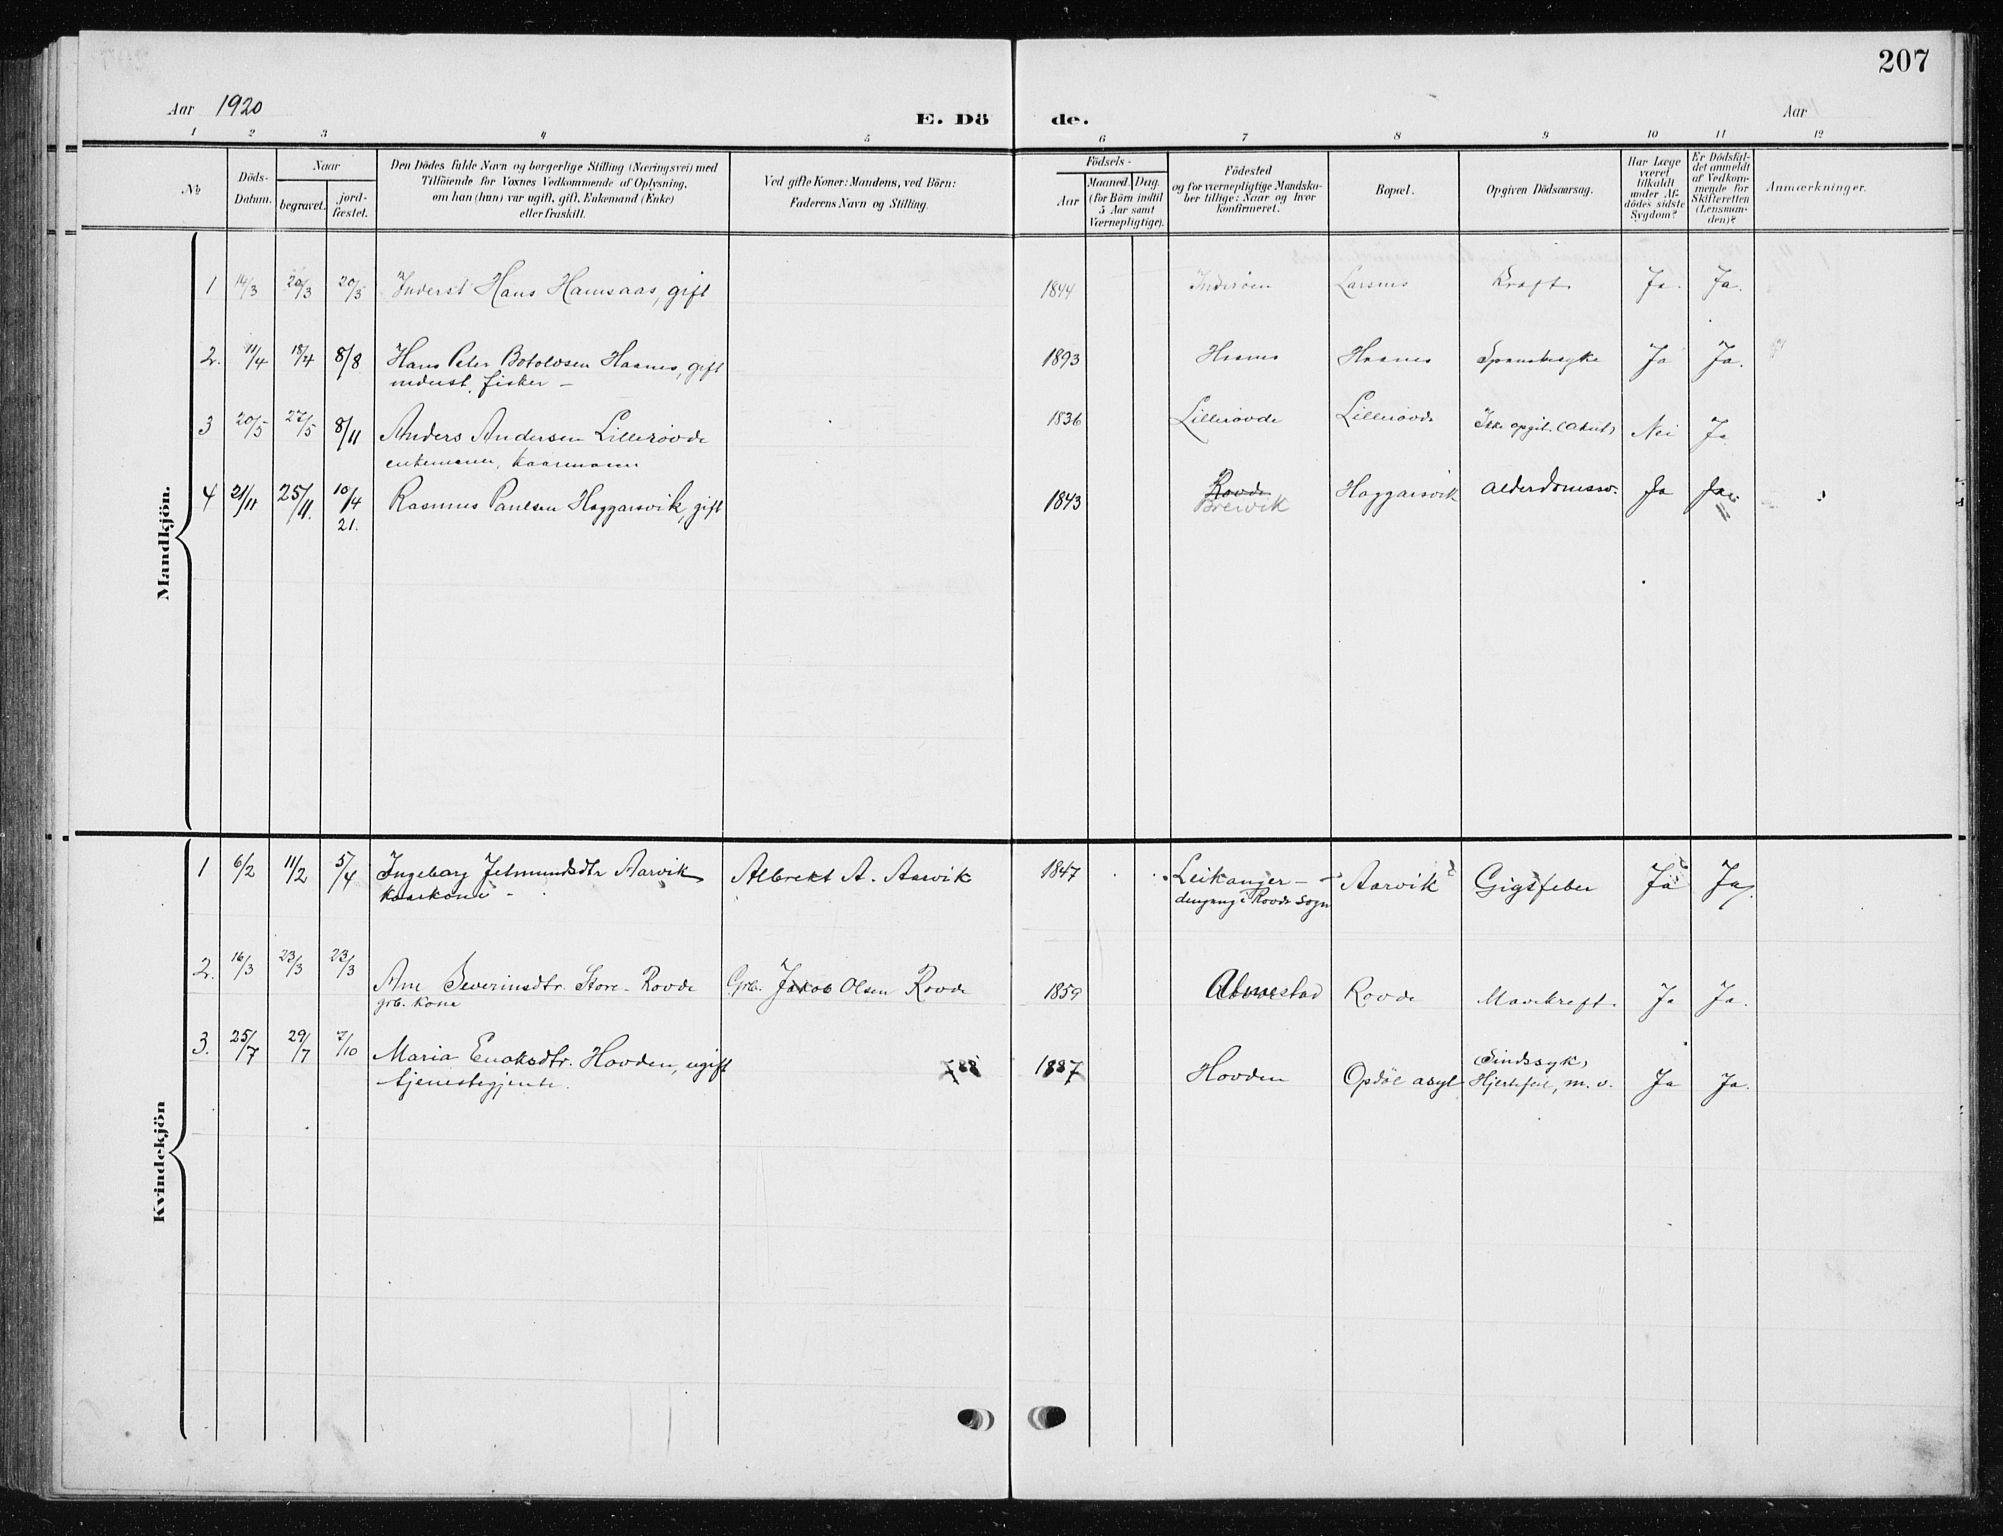 207
Aar 1920
E. Dö de.
Aar
1 2 3 4 5 6 7 8 9 10 11 12
№
Döds-
Datum.
Naar
begravet.
jord-
fæstet.
Den Dödes fulde Navn og borgerlige Stilling (Næringsvei) med
Tilföiende for Voxnes Vedkommende af Oplysning,
om han (hun) var ugift, gift, Enkemand (Enke)
eller fraskilt.
Ved gifte Koner: Mandens, ved Börn:
Faderens Navn og Stilling.
Födsels-
Aar
Maaned. Dag.
(for Börn indtil
5 Aar samt
Værnepligtige).
Födested
og for værnepligtige Mandska-
ber tillige: Naar og hvor
konfirmeret.
Bopæl.
Opgiven Dödsaarsag.
Har Læge
været
tilkaldt
under Af-
dödes sidste
Sygdom?
Er Dödsfal-
det anmeldt
af Vedkom-
mende for
Skifteretten
(Lensman-
den)?
Anmærkninger.
Mandkjön.
1 14/3 20/3 20/5 Inderst Hans Hansaas, gift 1844 Inderöen Larsnes Kræft Ja. Ja.
2. 11/4 18/4 8/8 Hans Peter Botolvsen Haanes, gift 1893 Haanes Haanes Spanskesyke Ja Ja.
inderst, fisker –
3 20/5 27/5 8/11 Anders Andersen Lillerovde 1836 Lillerovde Lillerovde Ikke opgit. (Akut) Nei Ja
enkemann, kaarmann
4 21/11 25/11. 10/4 21. Rasmus Paulsen Haggarsvik, gift 1843 Rovde Haggarsvik Alderdomssv. Ja Ja
Breivik
Kvindekjön
1 6/2 11/2 5/4 Ingeborg Jetmundsdtr Aarvik Albrekt A. Aarvik 1847 Leikanger – Aarvik Gigtfeber Ja Ja.
Kaarkone – dengang i Rovde sogn
2. 16/3 23/3 23/3 Ane Severinsdtr. Store-Rovde Grb. Jakob Olsen Rovde 1859 Almestad Rovde Mavekreft. Ja Ja.
grb. kone
3. 25/7 29/7 7/10 Maria Enoksdtr. Hovden, ugift 1887 Hovden Opdöl asyl Sindssyk, Hjertefeil, m. v. Ja Ja.
tjenestegjente.